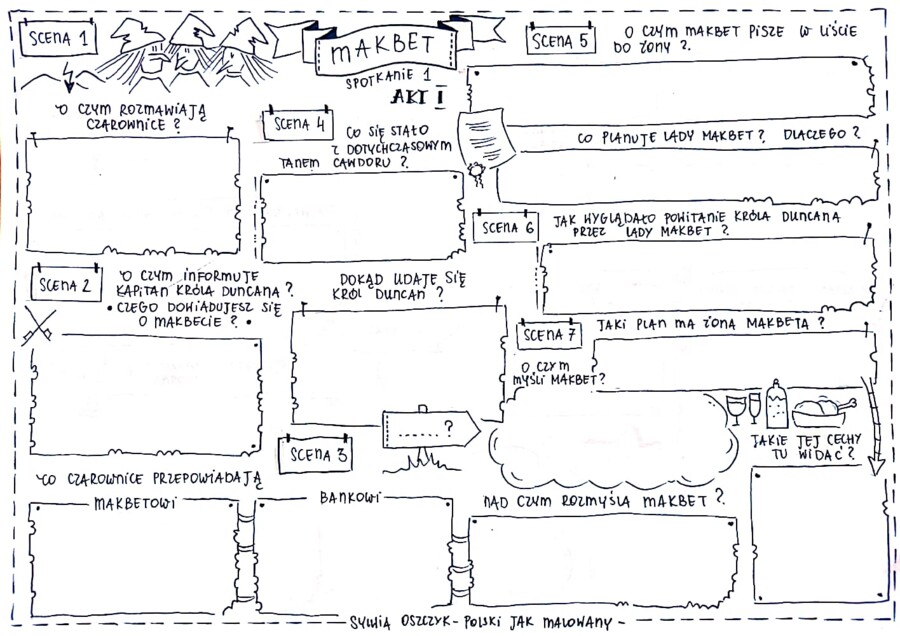 SCENA 1
MAKBET
SPOTKANIE 1
AKT I
O CZYM ROZMAWIAJĄ
CZAROWNICE ?
SCENA 2
O CZYM INFORMUJE
KAPITAN KRÓLA DUNCANA ?
• CZEGO DOWIADUJESZ SIĘ
O MAKBECIE ? •
CO CZAROWNICE PRZEPOWIADAJĄ
MAKBETOWI
BANKOWI
SCENA 3
SCENA 4
CO SIĘ STAŁO
Z DOTYCHCZASOWYM
TANEM CAWDORU ?
DOKĄD UDAJE SIĘ
KRÓL DUNCAN ?
....... ?
NAD CZYM ROZMYŚLA MAKBET ?
SCENA 5
O CZYM MAKBET PISZE W LIŚCIE
DO ŻONY ?
CO PLANUJE LADY MAKBET ? DLACZEGO ?
SCENA 6
JAK WYGLĄDAŁO POWITANIE KRÓLA DUNCANA
PRZEZ LADY MAKBET ?
SCENA 7
JAKI PLAN MA ŻONA MAKBETA ?
O CZYM
MYŚLI MAKBET ?
JAKIE JEJ CECHY
TU WIDAĆ ?
SYLWIA OSZCZYK - POLSKI JAK MALOWANY -